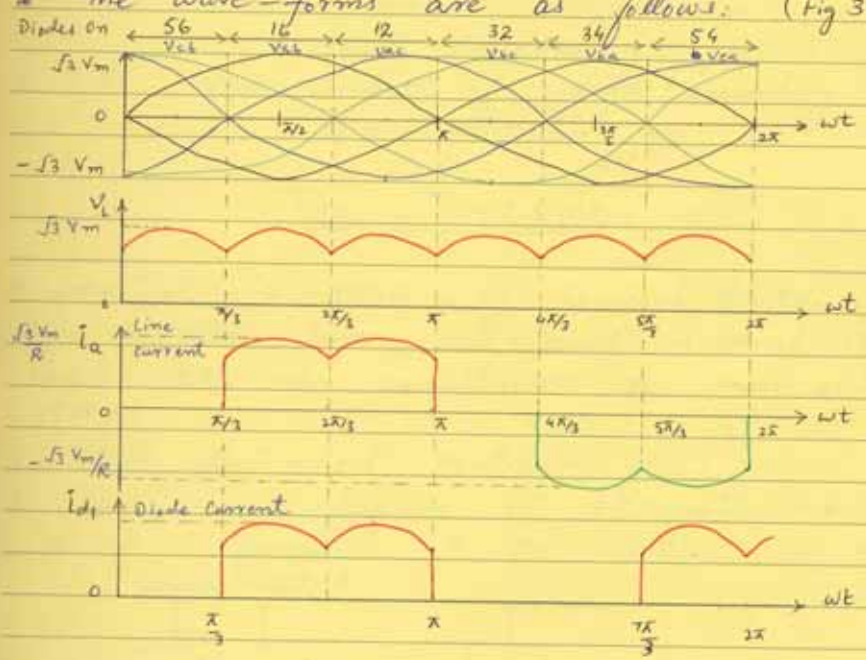 the wave-forms are as follows: (Fig 3
Diodes On 56 16 12 32 34 54
Vcb Vab Vac Vbc Vba Vca
√3 Vm
0 π/2 π 2π ωt
-√3 Vm
VL
√3 Vm
π/3 2π/3 π 4π/3 5π/3 2π ωt
√3 Vm/R ia Line Current
0 π/3 2π/3 π 4π/3 5π/3 2π ωt
-√3 Vm/R
id1 Diode Current
0 ωt
π/3 π 7π/3 2π